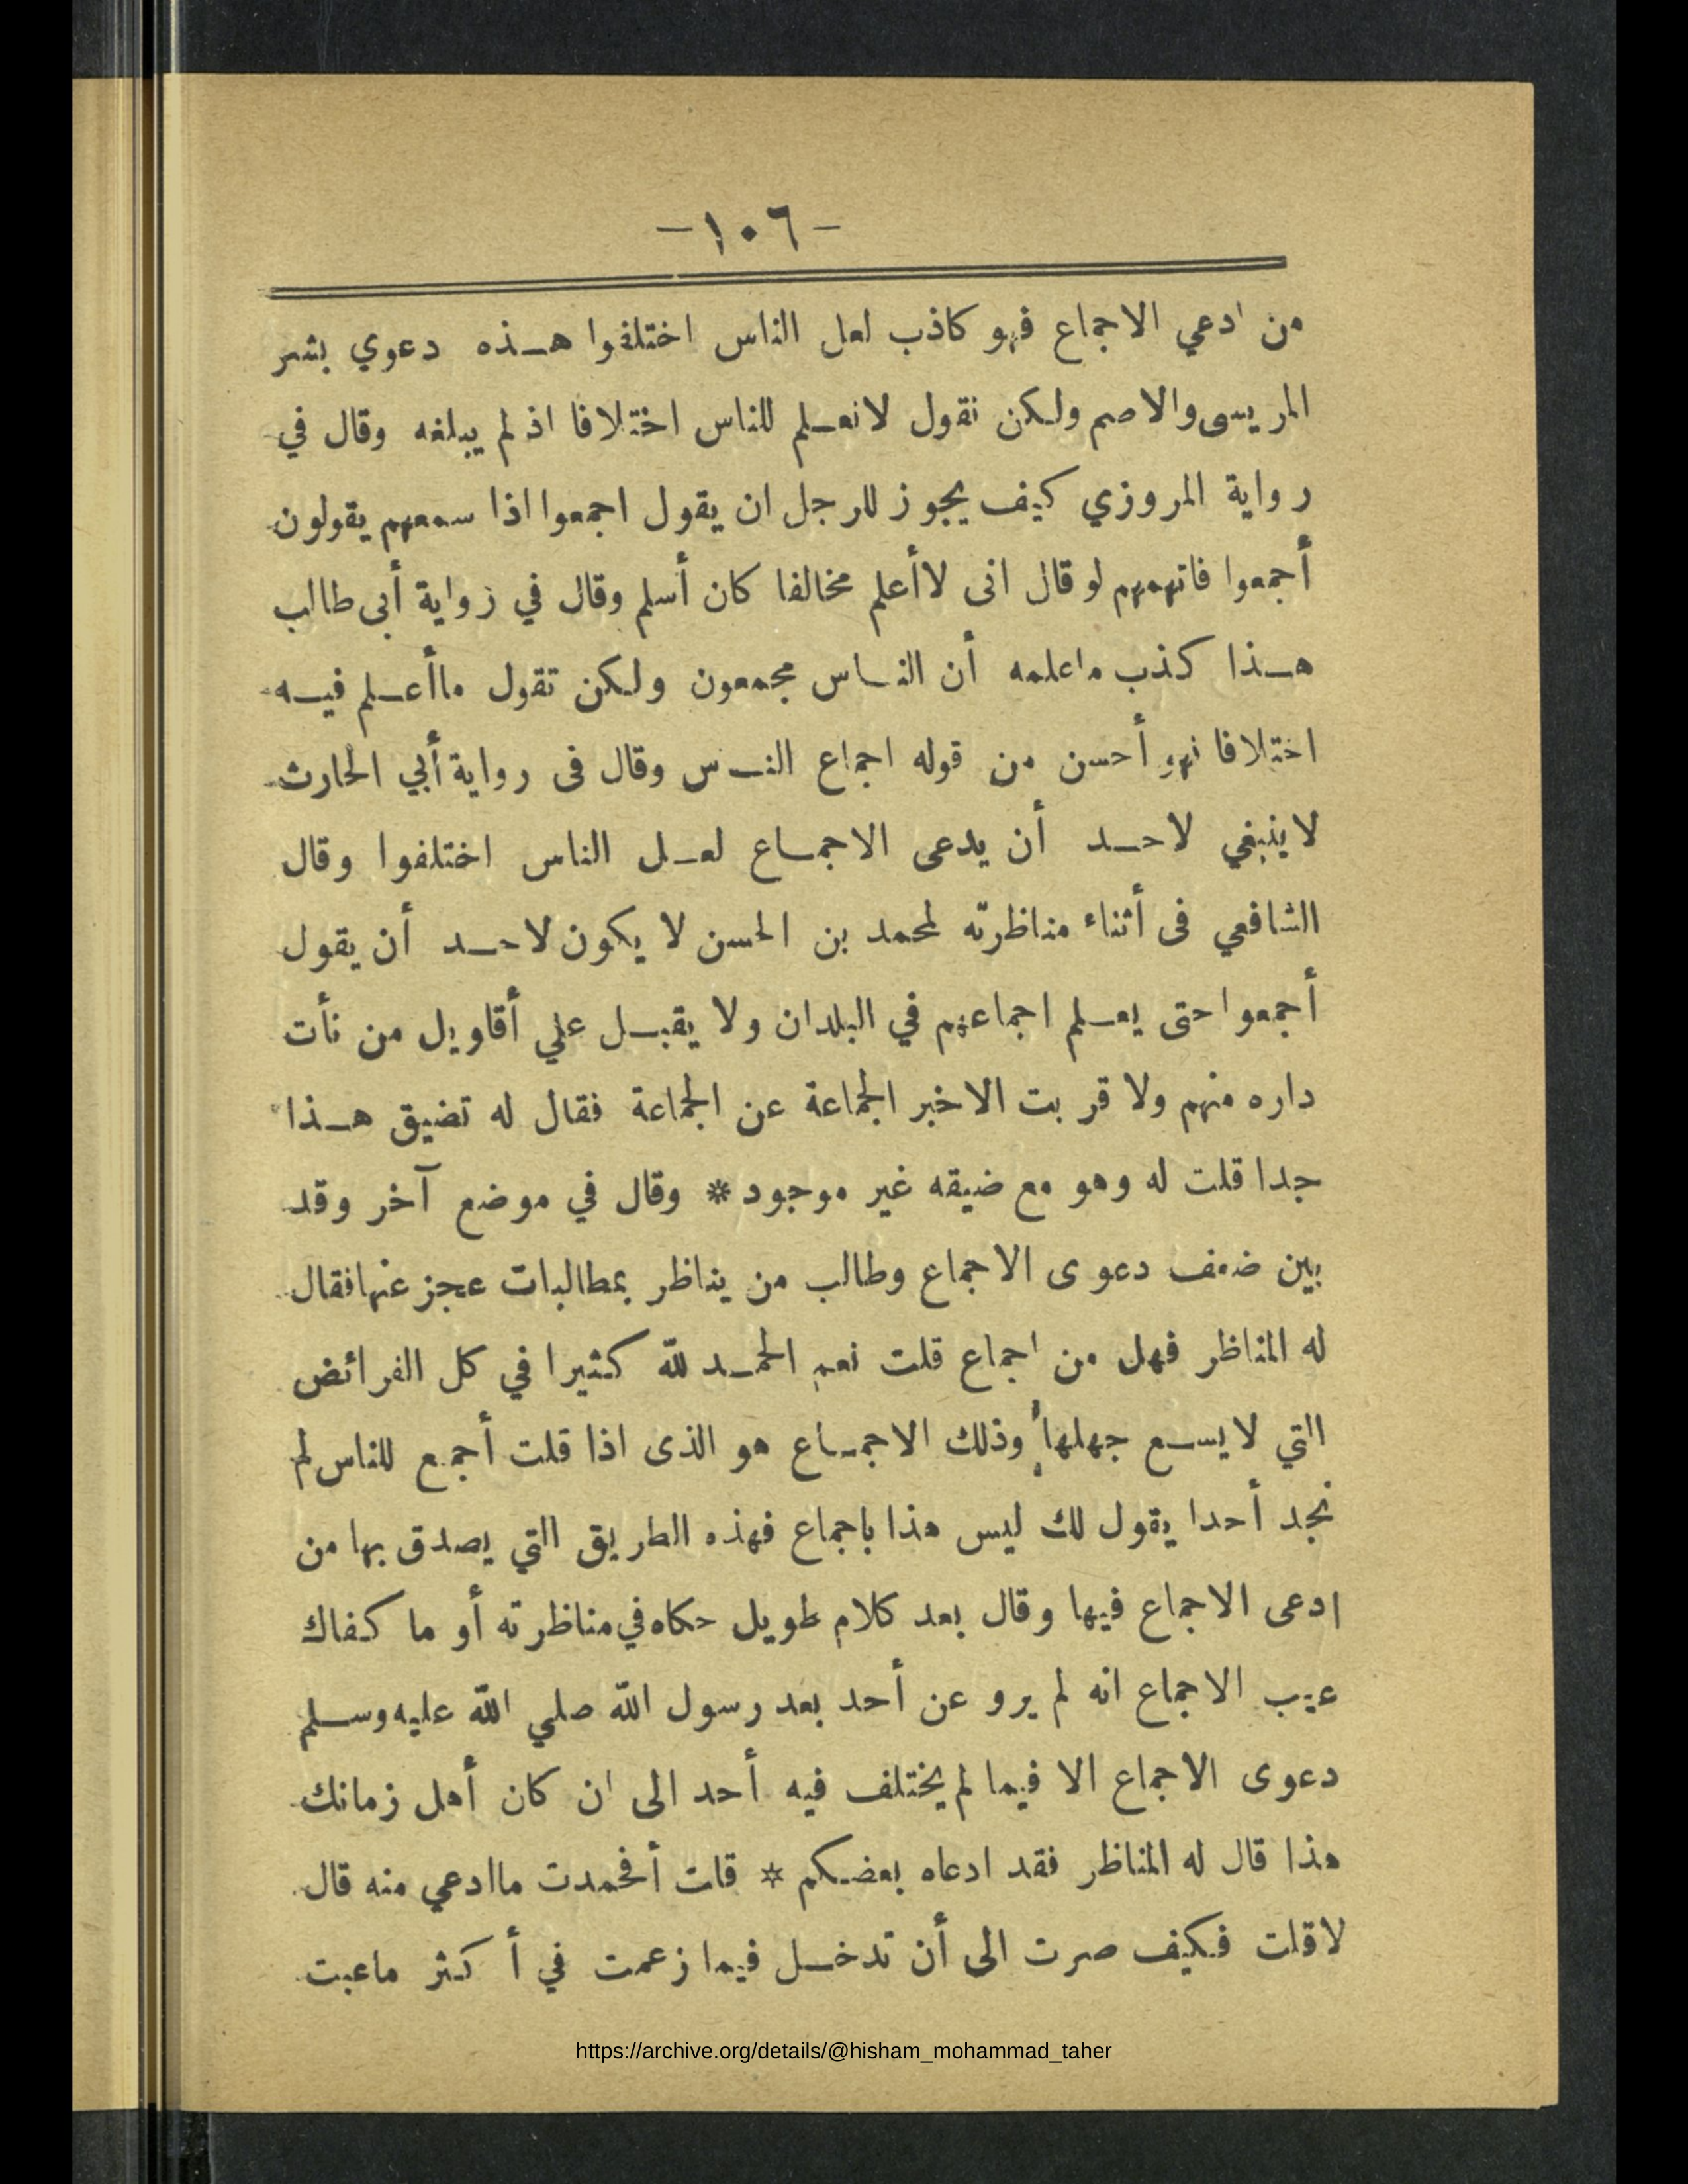 -١٠٦-
من ادعي الاجماع فهو كاذب لعل الناس اختلفوا هـذه دعوي بشر
المريسى والاصم ولكن نقول لانعـلم للناس اختلافا اذ لم يبلغه وقال في
رواية المروزي كيف يجوز للرجل ان يقول اجمعوا اذا سمعهم يقولون
أجمعوا فاتهمهم لو قال انى لاأعلم مخالفا كان أسلم وقال في زواية أبى طالب
هـذا كذب ماعلمه أن النـاس مجمعون ولكن تقول ماأعـلم فيـه
اختلافا نهو أحسن من قوله اجماع النـس وقال فى رواية أبي الحارث
لاينبغي لاحـد أن يدعى الاجمـاع لعـل الناس اختلفوا وقال
الشافعي فى أثناء مناظرته لمحمد بن الحسن لا يكون لاحـد أن يقول
أجمعوا حتى يعـلم اجماعهم في البلدان ولا يقبـل علي أقاويل من نأت
داره منهم ولا قربت الاخبر الجماعة عن الجماعة فقال له تضيق هـذا
جدا قلت له وهو مع ضيقه غير موجود * وقال في موضع آخر وقد
بين ضعف دعوى الاجماع وطالب من يناظر بمطالبات عجز عنها فقال
له المناظر فهل من اجماع قلت نعم الحمـد لله كثيرا في كل الفرائض
التي لايسـع جهلها وذلك الاجمـاع هو الذى اذا قلت أجمع للناس لم
نجد أحدا يقول لك ليس هذا باجماع فهذه الطريق التي يصدق بها من
ادعى الاجماع فيها وقال بعد كلام طويل حكاه في مناظرته أو ما كفاك
عيب الاجماع انه لم يرو عن أحد بعد رسول الله صلي الله عليه وسـلم
دعوى الاجماع الا فيما لم يختلف فيه أحد الى ان كان أهل زمانك
هذا قال له المناظر فقد ادعاه بعضكم * قلت أفحمدت ماادعي منه قال
لاقلت فكيف صرت الى أن تدخـل فيما زعمت في أ كثر ماعبت
https://archive.org/details/@hisham_mohammad_taher